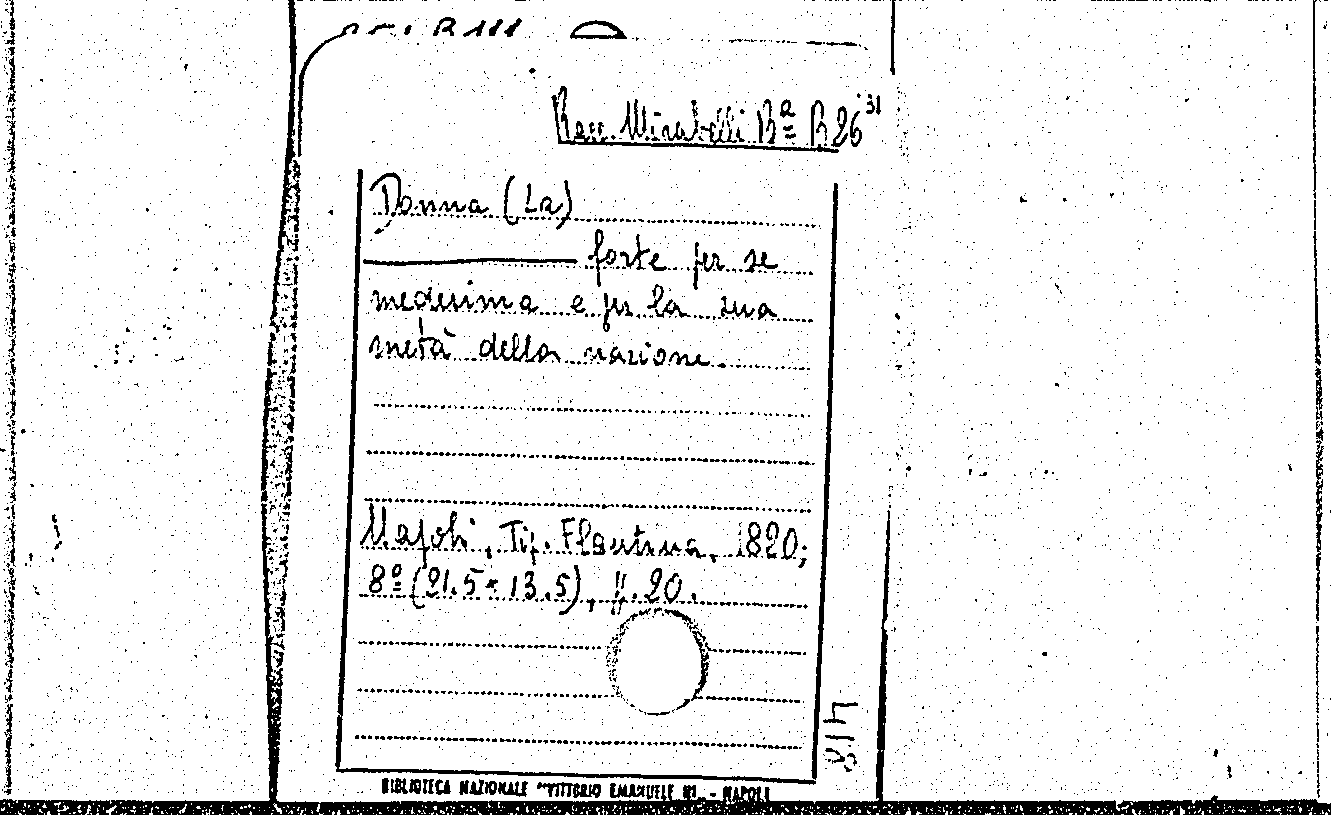 Racc. Mirabelli Bª B 26 31
Donna (La)
forte per se
medesima e per la sua
metà della nazione.
Napoli, Tip. Flautina, 1820;
8º (21.5 × 13.5), pp. 20.
418
BIBLIOTECA NAZIONALE "VITTORIO EMANUELE III" - NAPOLI